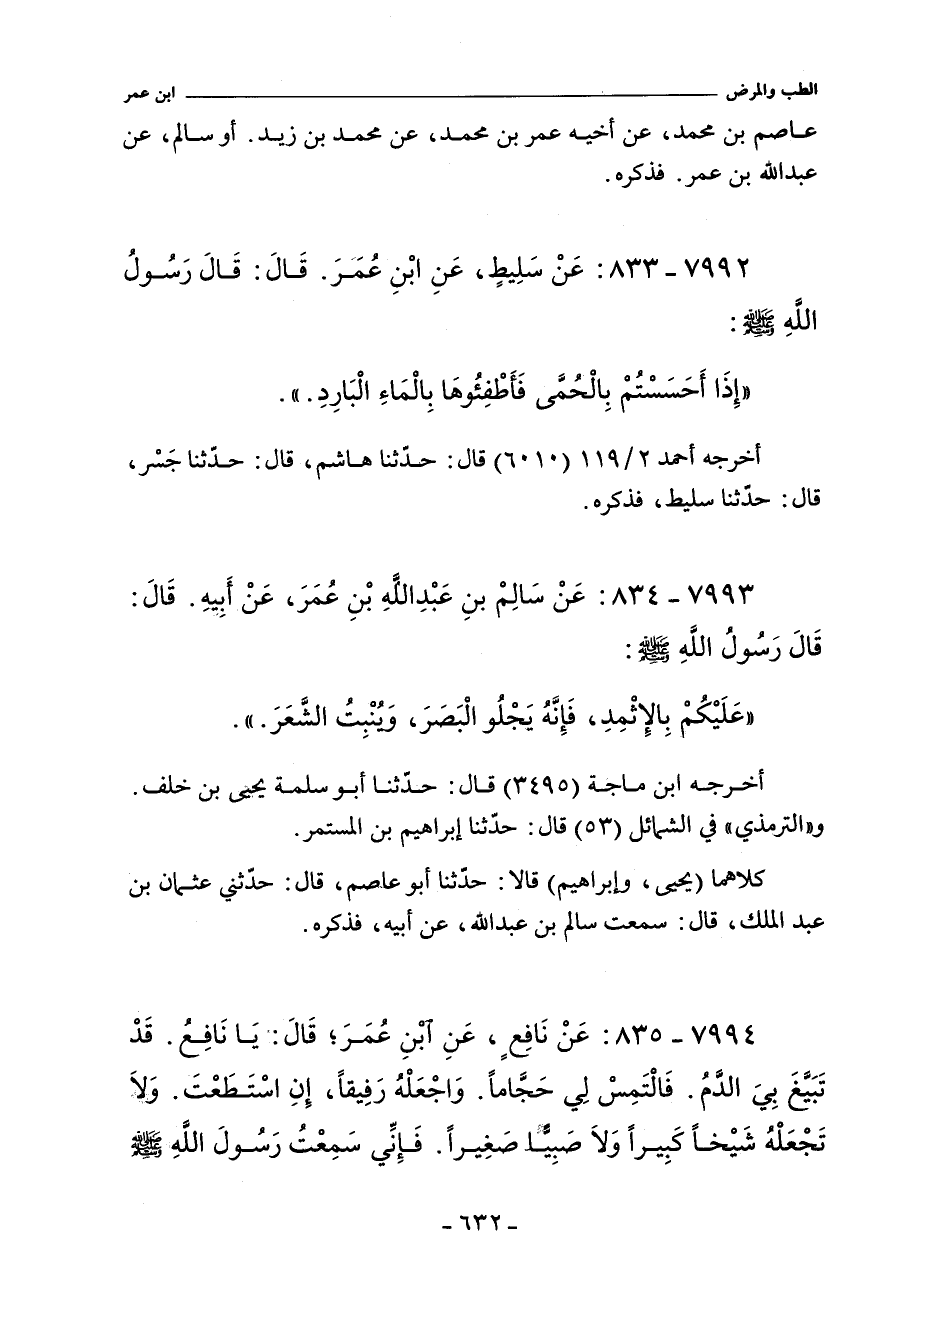 الطب والمرض ــــــــــــــــــــــــــــــــــــــــ ابن عمر
عاصم بن محمد، عن أخيه عمر بن محمد، عن محمد بن زيد. أو سالم، عن
عبدالله بن عمر. فذكره.
٧٩٩٢ ـ ٨٣٣: عَنْ سَلِيطٍ، عَنِ ابْنِ عُمَرَ. قَالَ: قَالَ رَسُولُ
اللَّهِ ﷺ:
«إِذَا أَحَسَسْتُمْ بِالْحُمَّى فَأَطْفِئُوهَا بِالْمَاءِ الْبَارِدِ.».
أخرجه أحمد ٢/١١٩ (٦٠١٠) قال: حدّثنا هاشم، قال: حدّثنا جَسْر،
قال: حدّثنا سليط، فذكره.
٧٩٩٣ ـ ٨٣٤: عَنْ سَالِمْ بنِ عَبْدِاللَّهِ بْنِ عُمَرَ، عَنْ أَبِيهِ. قَالَ:
قَالَ رَسُولُ اللَّهِ ﷺ:
«عَلَيْكُمْ بِالإِثْمِدِ، فَإِنَّهُ يَجْلُو الْبَصَرَ، وَيُنْبِتُ الشَّعَرَ.».
أخرجه ابن ماجة (٣٤٩٥) قال: حدّثنا أبو سلمة يحيى بن خلف.
و«الترمذي» في الشمائل (٥٣) قال: حدّثنا إبراهيم بن المستمر.
كلاهما (يحيى، وإبراهيم) قالا: حدّثنا أبو عاصم، قال: حدّثني عثمان بن
عبد الملك، قال: سمعت سالم بن عبدالله، عن أبيه، فذكره.
٧٩٩٤ ـ ٨٣٥: عَنْ نَافِعٍ، عَنِ ٱبْنِ عُمَرَ؛ قَالَ: يَا نَافِعُ. قَدْ
تَبَيَّغَ بِيَ الدَّمُ. فَالْتَمِسْ لِي حَجَّاماً. وَاجْعَلْهُ رَفِيقاً، إِنِ اسْتَطَعْتَ. وَلاَ
تَجْعَلْهُ شَيْخاً كَبِيراً وَلاَ صَبِيًّا صَغِيراً. فَإِنِّي سَمِعْتُ رَسُولَ اللَّهِ ﷺ
ـ ٦٣٢ ـ